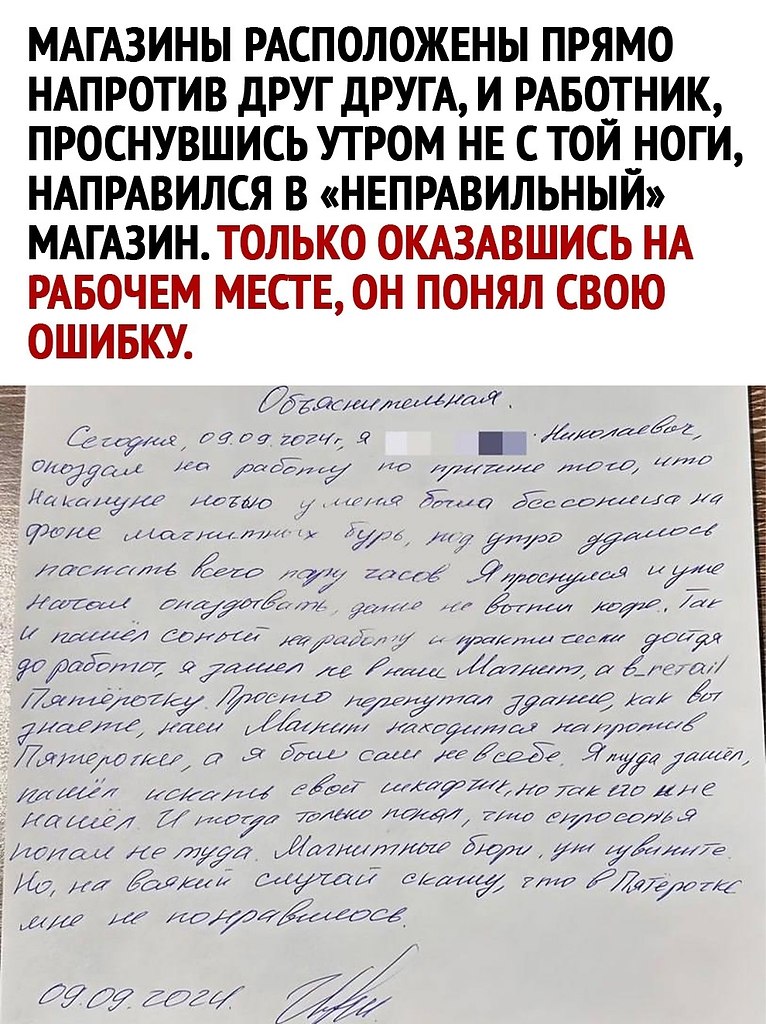 МАГАЗИНЫ РАСПОЛОЖЕНЫ ПРЯМО
НАПРОТИВ ДРУГ ДРУГА, И РАБОТНИК,
ПРОСНУВШИСЬ УТРОМ НЕ С ТОЙ НОГИ,
НАПРАВИЛСЯ В «НЕПРАВИЛЬНЫЙ»
МАГАЗИН. ТОЛЬКО ОКАЗАВШИСЬ НА
РАБОЧЕМ МЕСТЕ, ОН ПОНЯЛ СВОЮ
ОШИБКУ.
Объяснительная.
Сегодня, 09.09.2024г, я Николаевич,
опоздал на работу по причине того, что
накануне ночью у меня была бессоница на
фоне магнитных бурь, под утро удалось
паспать всего пару часов. Я проснулся и уже
начал опаздывать, даже не выпил кофе. Так
и пашёл соный на работу и практически дойдя
до работы, я зашел не в наш Магнит, а в_retail
Пятёрочку. Просто перепутал здание, как вы
знаете, наш Магнит находится напротив
Пятерочки, а я был сам не в себе. Я туда зашёл,
пашёл искать свой шкафчик, но так его и не
нашёл. И тогда только понял, что спросонья
попал не туда. Магнитные бюри, уж извините.
Но, на всякий случай скажу, что в Пятёрочке
мне не понравилось.
09.09.2024.